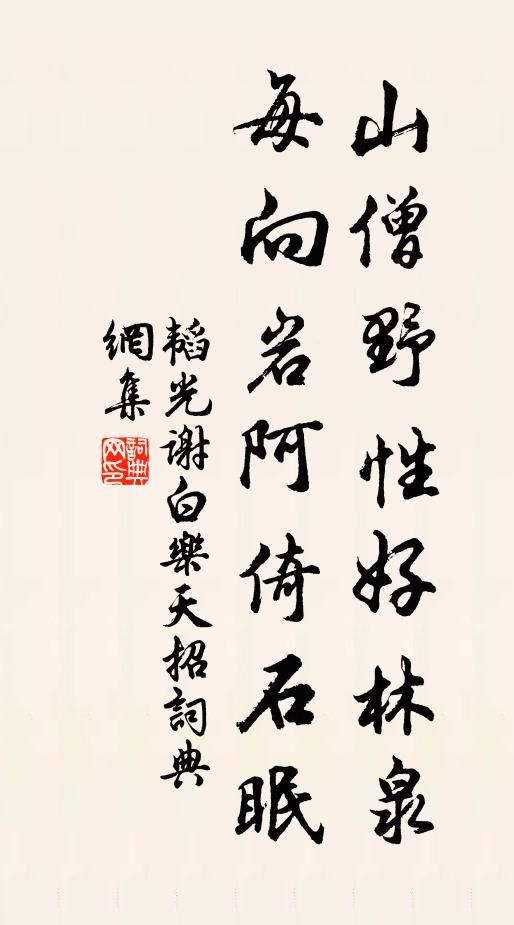 山僧野性好林泉
每向岩阿倚石眠
韬光謝白樂天招詞典
網集
詞典
网印